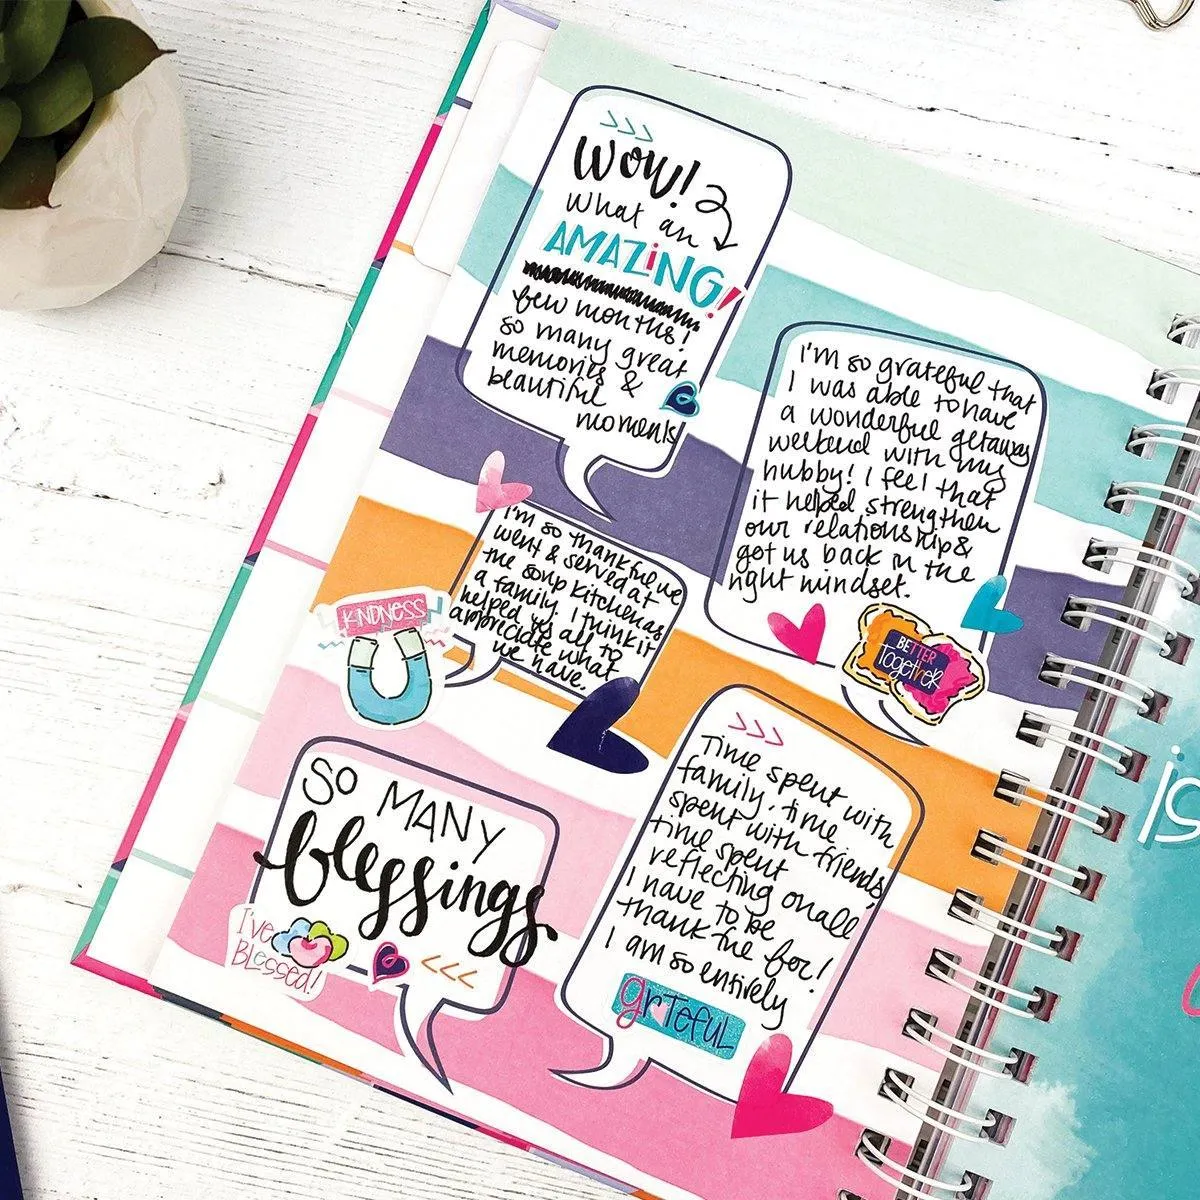 >>>
Wow!
what an
AMAZiNG!
few months!
so many great
memories &
beautiful
moments
I'm so grateful that
I was able to have
a wonderful getaway
weekend with my
hubby! I feel that
it helped strengthen
our relationship &
got us back in the
right mindset.
BETTER
TogetheR
I'm so thankful we
went & served at
the soup kitchen as
a family. I think it
helped us all to
appreciate what
we have.
KiNDNESS
SO MANY
blessings
I've
BLessed!
<<<
>>>
Time spent with
family, time
spent with friends,
time spent
reflecting on all
I have to be
thankful for!
I am so entirely
grTefuL
is